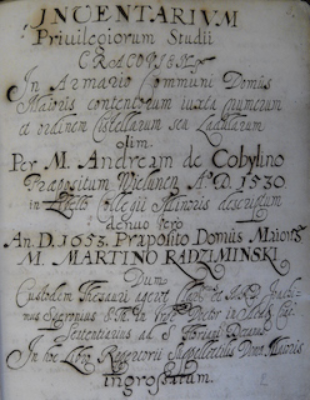 INVENTARIVM
Privilegiorum Studii
CRACOVIEN
In Armario Communi Domus
Maioris contentorum iuxta numerum
et ordinem Cistellarum seu Ladularum
olim.
Per M. Andream de Cobylino
Præpositum Wielunen A.D. 1530.
in Collegii Minoris descriptum
denuo vero
An. D. 1653. Præposito Domus Maioris
M. MARTINO RADZIMINSKI.
Dum
Custodem Thesauri ageret et
Doctor in
ad S. Floriani
In hoc Libro Repertorii Domus Maioris
ingrossatum.